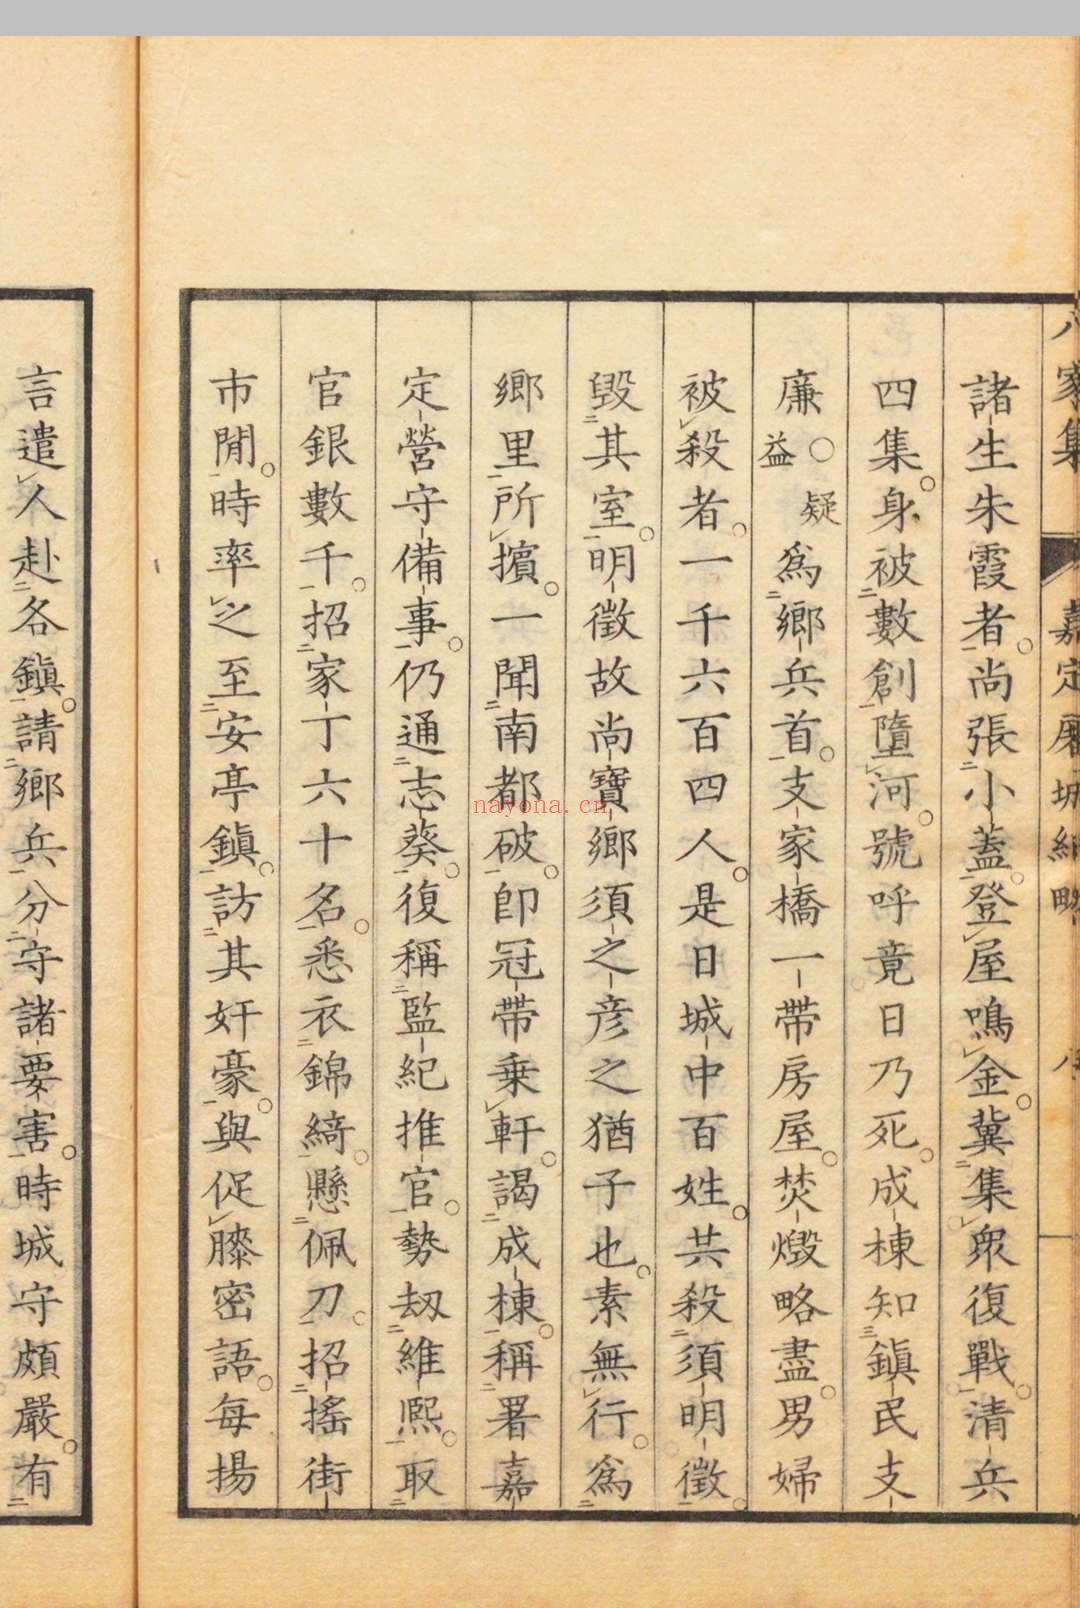 八家集 嘉定屠城紀略 八
諸生朱霞者。尚張小蓋。登屋鳴金。冀集衆復戰。清兵
四集。身被數創墮河。號呼竟日乃死。成棟知鎮民支
廉○益疑爲鄉兵首。支家橋一帶房屋。焚燬略盡。男婦
被殺者。一千六百四人。是日城中百姓。共殺須明徵。
毀其室。明徵故尚寶鄉須之彦之猶子也。素無行。爲
鄉里所擯。一聞南都破。卽冠帶乗軒。謁成棟。稱署嘉
定營守備事。仍通志葵。復稱監紀推官。勢刼維熙。取
官銀數千。招家丁六十名。悉衣錦綺。懸佩刀。招搖街
市閒。時率之至安亭鎮。訪其奸豪。與促膝密語。每揚
言遣人赴各鎮。請鄉兵分守諸要害。時城守頗嚴。有
nayona.cn